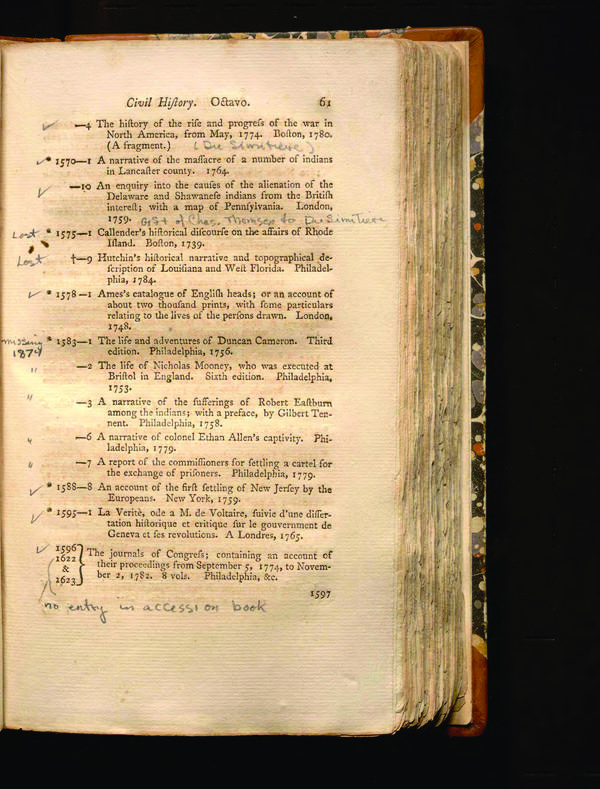 Civil Hiſtory. Octavo. 61
✓ —4 The hiſtory of the riſe and progreſs of the war in
North America, from May, 1774. Boſton, 1780.
(A fragment.) (Du Simitiere)
✓ * 1570—1 A narrative of the maſſacre of a number of indians
in Lancaſter county. 1764.
✓ —10 An enquiry into the cauſes of the alienation of the
Delaware and Shawaneſe indians from the Britiſh
intereſt; with a map of Pennſylvania. London,
1759. Gift of Chas. Thomson to Du Simitiere
Lost * 1575—1 Callender's hiſtorical diſcourſe on the affairs of Rhode
Iſland. Boſton, 1739.
Lost †—9 Hutchin's hiſtorical narrative and topographical de-
ſcription of Louiſiana and Weſt Florida. Philadel-
phia, 1784.
✓ * 1578—1 Ames's catalogue of Engliſh heads; or an account of
about two thouſand prints, with ſome particulars
relating to the lives of the perſons drawn. London,
1748.
missing * 1585—1 The life and adventures of Duncan Cameron. Third
1874 edition. Philadelphia, 1756.
" —2 The life of Nicholas Mooney, who was executed at
Briſtol in England. Sixth edition. Philadelphia,
1753.
" —3 A narrative of the ſufferings of Robert Eaſtburn
among the indians; with a preface, by Gilbert Ten-
nent. Philadelphia, 1758.
" —6 A narrative of colonel Ethan Allen's captivity. Phi-
ladelphia, 1779.
" —7 A report of the commiſſioners for ſettling a cartel for
the exchange of priſoners. Philadelphia, 1779.
✓ * 1588—8 An account of the firſt ſettling of New Jerſey by the
Europeans. New York, 1759.
✓ * 1595—1 La Veritè, ode a M. de Voltaire, ſuivie d'une diſſer-
tation hiſtorique et critique ſur le gouvernment de
Geneva et ſes revolutions. A Londres, 1765.
✓ 1596
1622 The journals of Congreſs; containing an account of
& their proceedings from September 5, 1774, to Novem-
1623 ber 2, 1782. 8 vols. Philadelphia, &c.
1597
no entry in accession book